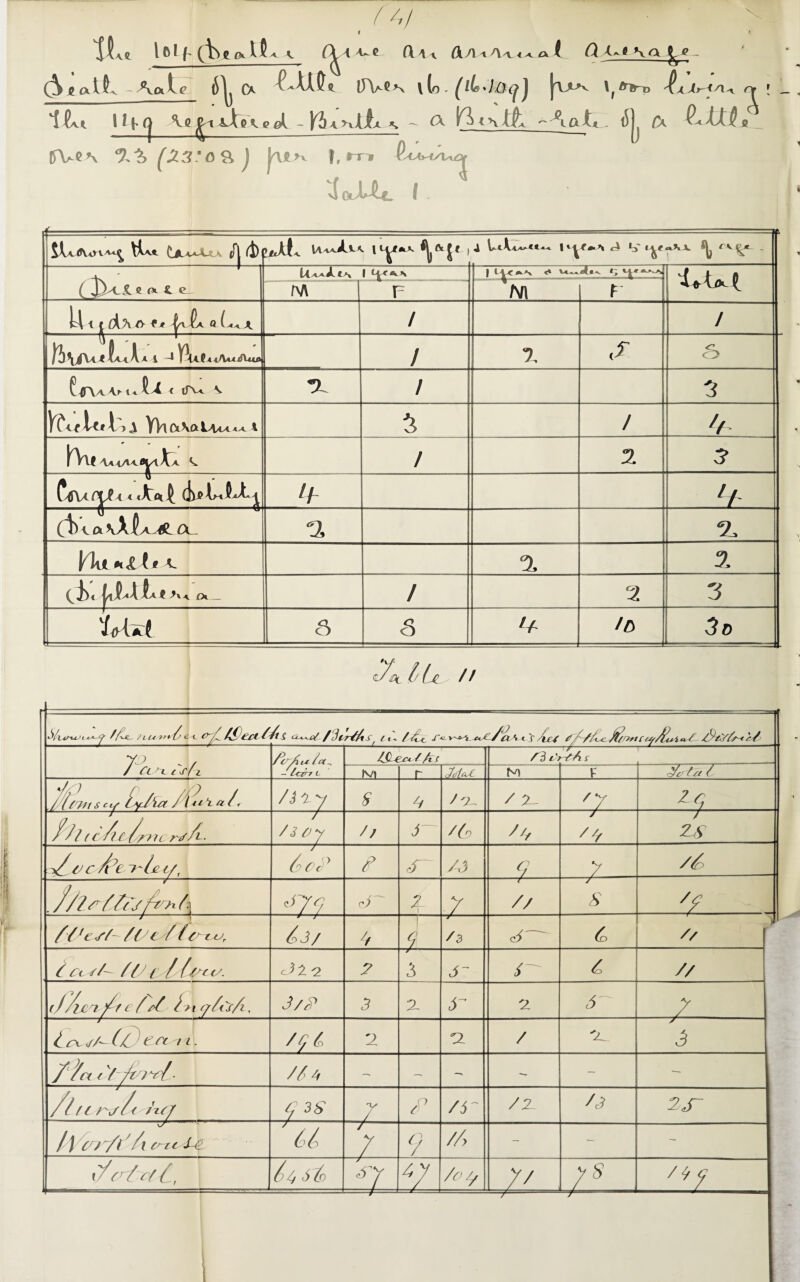 (4)
The 104 Deaths give an average
Death-rate of a little over 16 (16.109) per 1,000 living
The 149 registered Births a Birth-rate of a little
over 23 (23.08) per 1,000 living
Table I.
Showing the Causes of Death under 1 year of age, & between 1 year & 5 years of age.
Disease Under 1 year 1 year & under 5 years Total
M F M F
Hydrocephalus 1 1
Bronchitis & Pneumonia 1 2 5 8
Convulsions 2 1 3
Rickets & Marasmus 3 1 4
Meningitis 1 2 3
Congenital debility 4 4
Diarrhœa 2 2
Measles 2 2
Diphtheria 1 2 3
Total 8 8 4 10 30
Table II
Showing the number of Deaths and Births, in the several Parishes of the Romsey Rural District
Parish Population Deaths Births
M F Total M F Total
Romsey Extra Rural. 1327 8 4 12 12 17 29
Michelmersh. 1307 11 5 16 14 14 28
Lockerley, 608 8 5 13 9 7 16
Mottisfont 579 5 2 7 11 8 19
West-Wellow, 631 4 9 13 5 6 11
East-Wellow. 322 2 3 5 5 6 11
Sherfield English, 318 3 2 5 2 5 7
East-Dean. 196 2 2 1 2 3
Plaitford. 164 - - - - - -
Nursling 938 7 8 15 12 13 25
Workhouse 66 7 9 16 - - -
Total, 6456 57 47 104 71 78 149